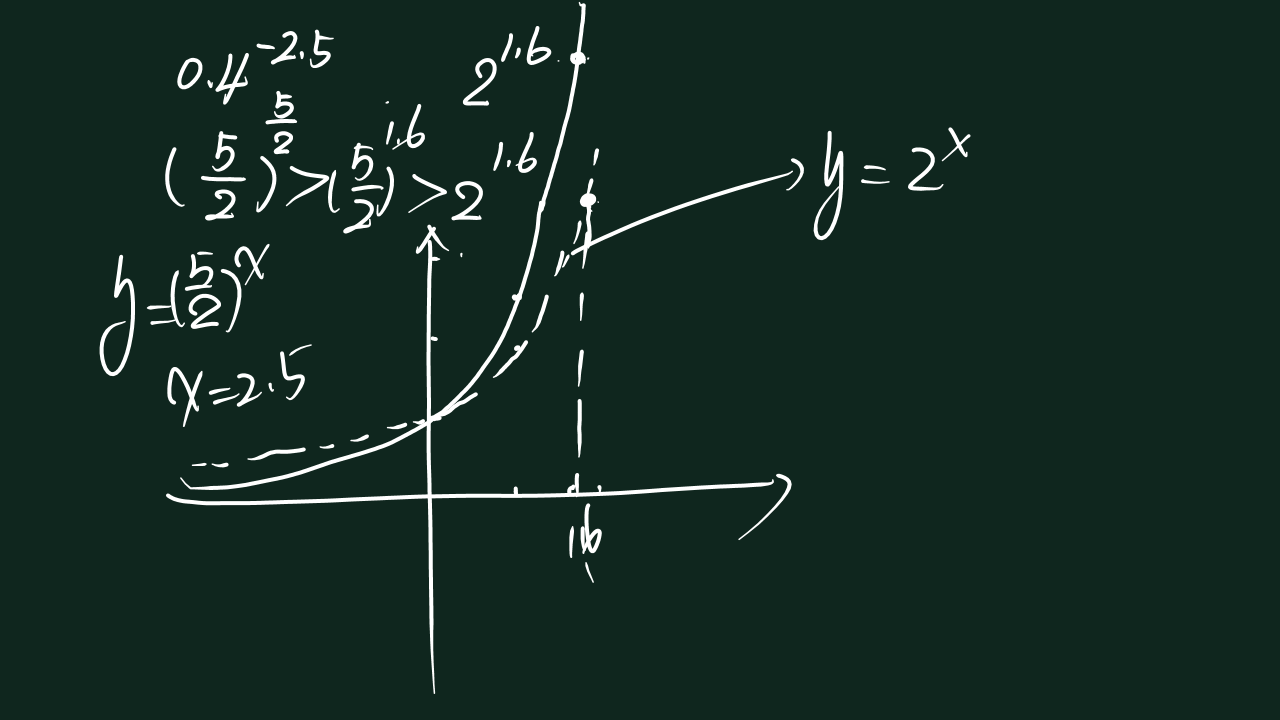 0.4^{-2.5} 2^{1.6}
(5/2)^{5/2} > (5/2)^{1.6} > 2^{1.6}
y = 2^x
y = (5/2)^x
x = 2.5
1.6